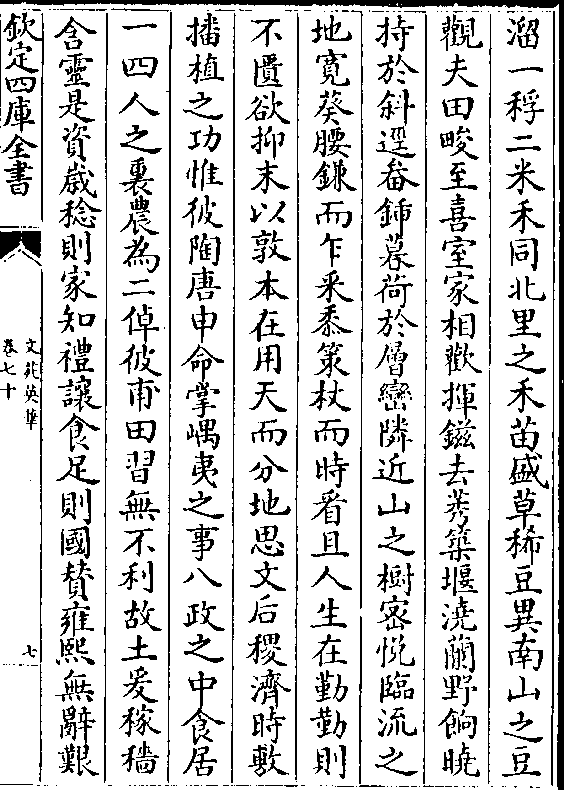 溜一稃二米禾同北里之禾苗盛草稀豆異南山之豆
觀夫田畯至喜室家相歡揮鎡去莠築堰澆蘭野餉曉
持於斜逕畚鍤暮荷於層巒隣近山之樹密悅臨流之
地寛葵腰鎌而乍采黍策杖而時看且人生在勤勤則
不匱欲抑末以敦本在用天而分地思文后稷濟時敷
播植之功惟彼陶唐申命掌嵎夷之事八政之中食居
一四人之裏農為二倬彼甫田習無不利故土爰稼穡
含靈是資歳稔則家知禮讓食足則國賛雍熙無辭艱
欽定四庫全書
文苑英華
卷七十
七